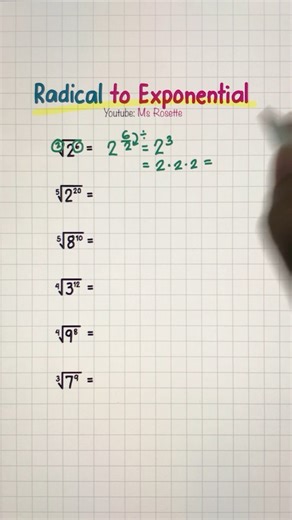 Radical to Exponential
Youtube: Ms Rosette
²√2⁶ = 2^(6/2) ÷ = 2³
= 2 · 2 · 2 =
⁵√2²⁰ =
⁵√8¹⁰ =
⁴√3¹² =
⁴√9⁸ =
³√7⁹ =